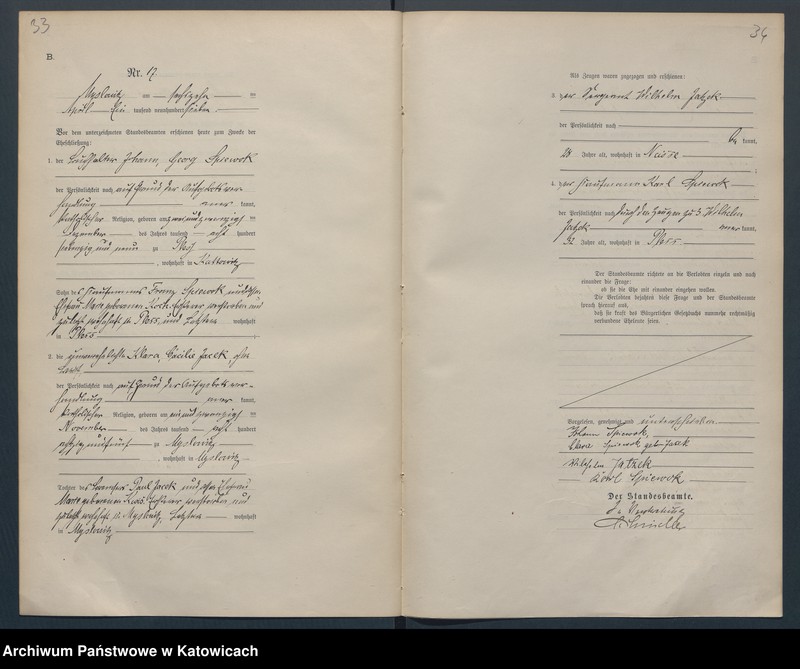 33
B.
Nr. 17.
Myslowitz am sechzehn ten
April Ein tausend neunhundert sieben.
Vor dem unterzeichneten Standesbeamten erschienen heute zum Zwecke der
Eheschließung:
1. der Buchhalter Johann, Georg Spiewok
der Persönlichkeit nach auf Grund der Aufgebotsver-
handlung aner kannt,
katholischer Religion, geboren am zwei und zwanzigsten
Dezember des Jahres tausend acht hundert
siebenzig und neun zu Pleß
, wohnhaft in Kattowitz
Sohn des Kaufmanns Franz Spiewok und dessen
Ehefrau Marie geborenen Kroth, Ersterer verstorben und
zuletzt wohnhaft in Pless und Letztere wohnhaft
in Pless.
2. die gewerbslose Klara, Cäcilie Jacek, ohne
der Persönlichkeit nach auf Grund der Aufgebotsver-
handlung aner kannt,
katholischer Religion, geboren am ein und zwanzigsten
November des Jahres tausend acht hundert
achtzig und fünf zu Myslowitz
, wohnhaft in Myslowitz
Tochter des Paul Jacek und dessen Ehefrau
Marie geborenen Ersterer verstorben und
zuletzt wohnhaft in Myslowitz, Letztere wohnhaft
in Myslowitz
34
Als Zeugen waren zugezogen und erschienen:
3. der Sergeant Wilhelm Jatzek
der Persönlichkeit nach
be kannt,
28 Jahre alt, wohnhaft in Neisse
;
4. der Kaufmann Karl Spiewok
der Persönlichkeit nach durch den Zeugen zu 3. Wilhelm
Jatzek aner kannt,
32 Jahre alt, wohnhaft in Pless.
Der Standesbeamte richtete an die Verlobten einzeln und nach
einander die Frage:
ob sie die Ehe mit einander eingehen wollen.
Die Verlobten bejahten diese Frage und der Standesbeamte
sprach hierauf aus,
daß sie kraft des Bürgerlichen Gesetzbuchs nunmehr rechtmäßig
verbundene Eheleute seien.
Vorgelesen, genehmigt und unterschrieben.
Johann Spiewok,
Klara Spiewok geb. Jacek
Wilhelm Jatzek
Karl Spiewok
Der Standesbeamte.
In Vertretung
Schindler
Archiwum Państwowe w Katowicach